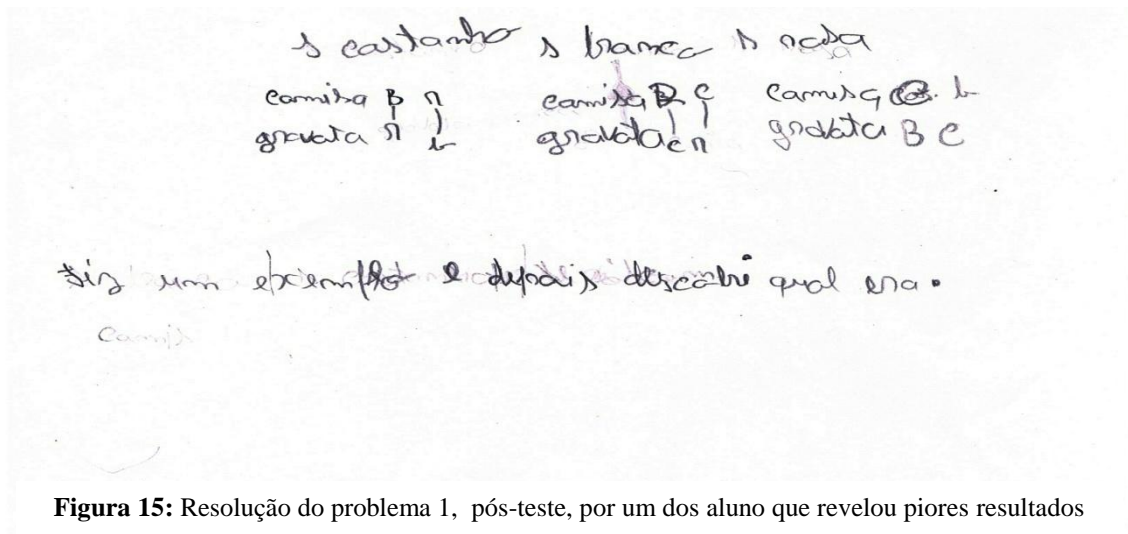 s castanho s branco s rosa
camisa B r camisa R C camisa C. b
gravata r b gravata c r gravata B C
fiz um exemplo e depois descobri qual era.
Camis
Figura 15: Resolução do problema 1, pós-teste, por um dos aluno que revelou piores resultados